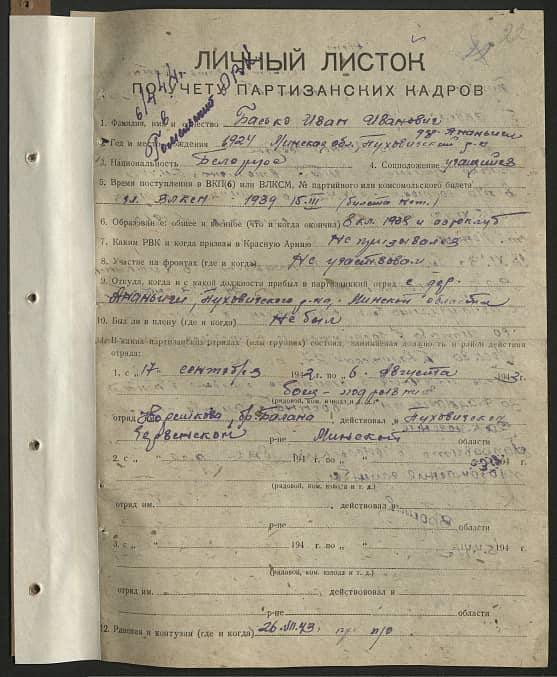 22
ЛИЧНЫЙ ЛИСТОК
ПО УЧЕТУ ПАРТИЗАНСКИХ КАДРОВ
6/4 44 г.
в
1. Фамилия, имя и отчество Басько Иван Иванович
2. Год и место рождения 1924 Минская обл., Пуховичский р-н
дер. Ананичи
3. Национальность Белорус 4. Соцположение учащийся
5. Время поступления в ВКП(б) или ВЛКСМ, № партийного или комсомольского билета
чл. ВЛКСМ 1939 15.III (билета нет.)
6. Образование: общее и военное (что и когда окончил) 8 кл. 1938 и аэроклуб
7. Каким РВК и когда призван в Красную Армию Не призывался
8. Участие на фронтах (где и когда) Не участвовал
9. Откуда, когда и с какой должности прибыл в партизанский отряд с дер.
Ананичи, Пуховичского р-на, Минской области
10. Был ли в плену (где и когда) Не был
11. В каких партизанских отрядах (или группах) состоял, занимаемая должность и район действия
отряда:
1. с „17“ сентября 1942 г. по „6“ августа 1943 г.
боец-подрывник
(рядовой, ком. взвода и т. д.)
отряд бр. действовал в Пуховичском
Червенском р-не Минской области
2. с „ “ 194 г. по „ “ 194 г.
(рядовой, ком. взвода и т. д.)
отряд им. действовал в
р-не области
3. с „ “ 194 г. по „ “ 194 г.
(рядовой, ком. взвода и т. д.)
отряд им. действовал в
р-не области
12. Ранения и контузии (где и когда) 26.VII.43